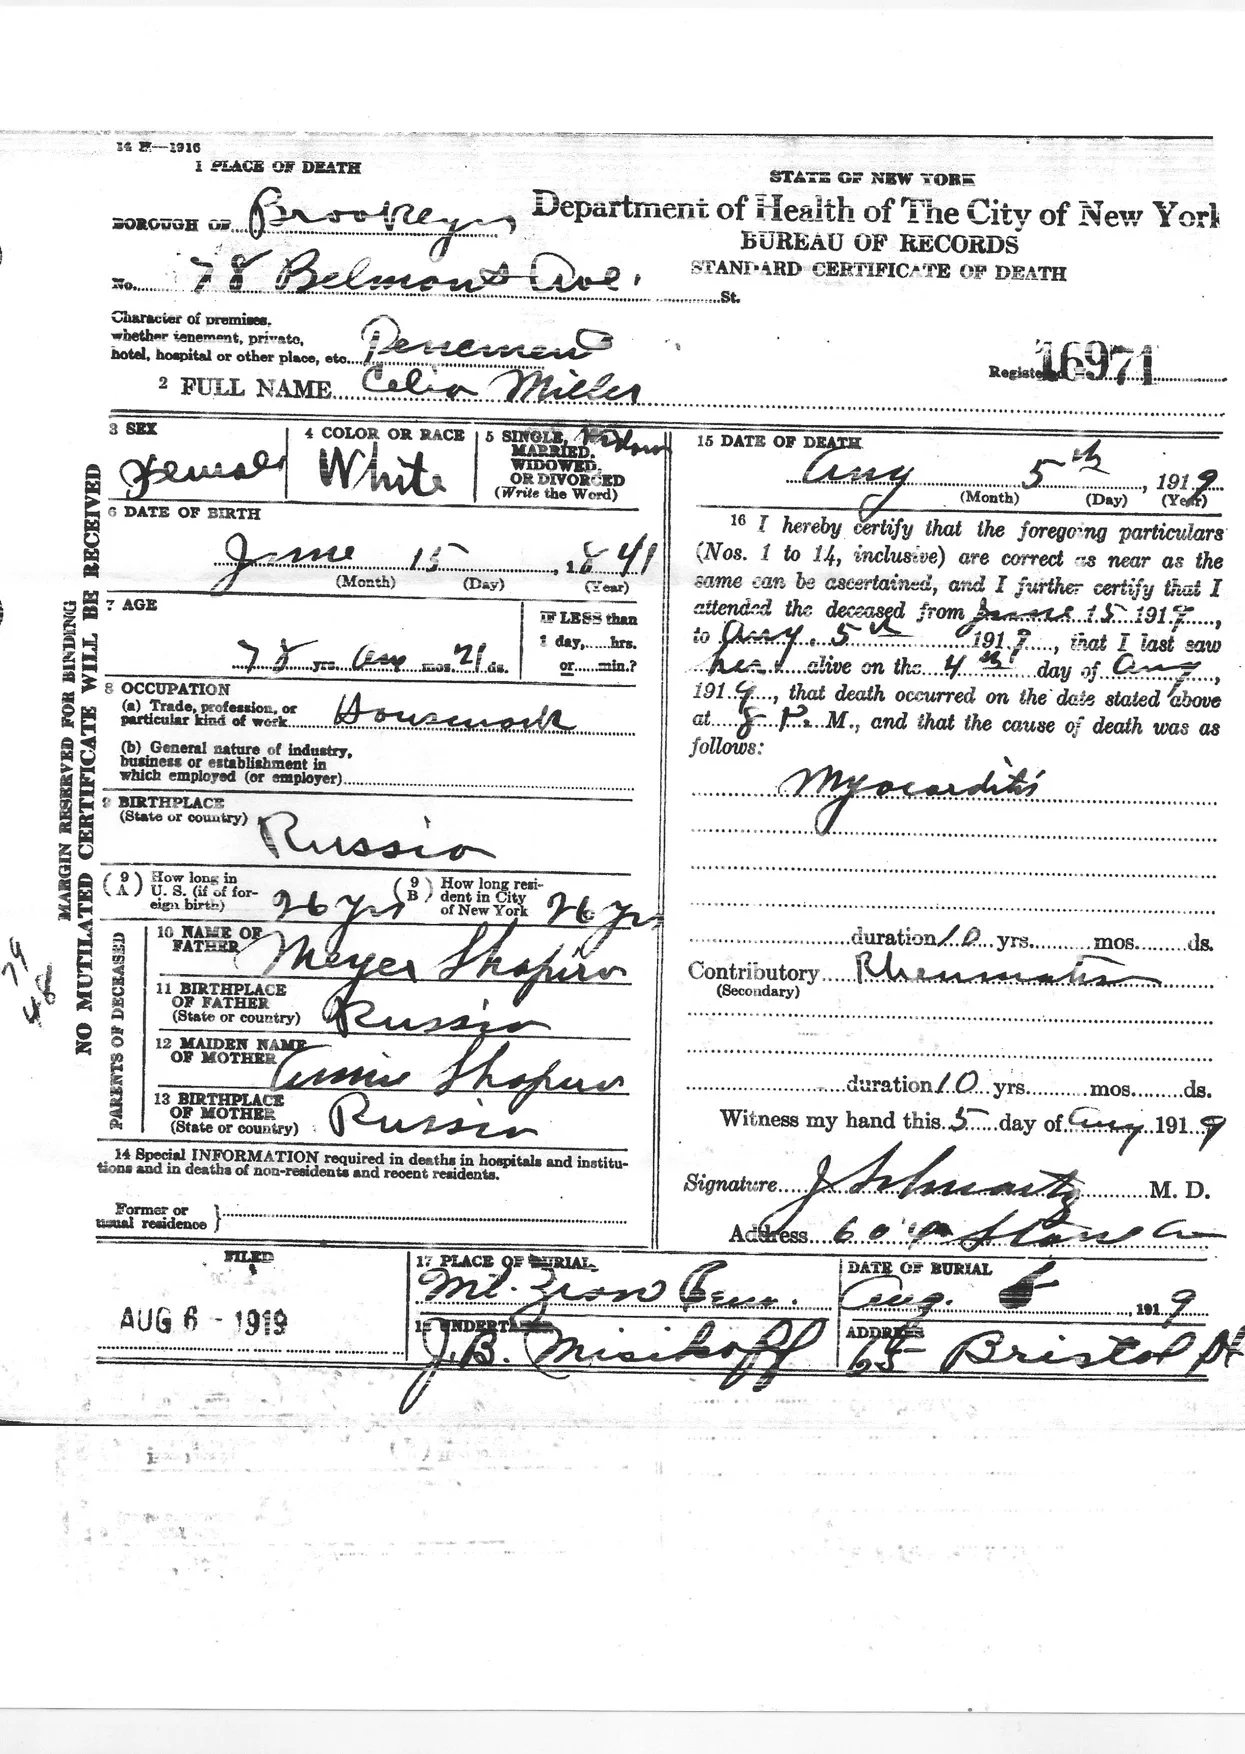 14 H—1916
1 PLACE OF DEATH
STATE OF NEW YORK
Department of Health of The City of New York
BUREAU OF RECORDS
STANDARD CERTIFICATE OF DEATH
BOROUGH OF Brooklyn
No. 78 Belmont Ave. St.
Character of premises,
whether tenement, private,
hotel, hospital or other place, etc. Tenement
Registered No. 16971
2 FULL NAME Celia Miller
MARGIN RESERVED FOR BINDING
NO MUTILATED CERTIFICATE WILL BE RECEIVED
3 SEX
Female
4 COLOR OR RACE
White
5 SINGLE, Widow
MARRIED,
WIDOWED,
OR DIVORCED
(Write the Word)
6 DATE OF BIRTH
June 15, 1841
(Month) (Day) (Year)
7 AGE
78 yrs. one mos. 21 ds.
IF LESS than
1 day, hrs.
or min.?
8 OCCUPATION
(a) Trade, profession, or
particular kind of work Housework
(b) General nature of industry,
business or establishment in
which employed (or employer)
9 BIRTHPLACE
(State or country) Russia
(9 A) How long in
U. S. (if of for-
eign birth) 26 yrs
(9 B) How long resi-
dent in City
of New York 26 yrs
PARENTS OF DECEASED
10 NAME OF
FATHER Meyer Shapiro
11 BIRTHPLACE
OF FATHER
(State or country) Russia
12 MAIDEN NAME
OF MOTHER Annie Shapiro
13 BIRTHPLACE
OF MOTHER
(State or country) Russia
14 Special INFORMATION required in deaths in hospitals and institu-
tions and in deaths of non-residents and recent residents.
Former or
usual residence
15 DATE OF DEATH
Aug 5th, 1919
(Month) (Day) (Year)
16 I hereby certify that the foregoing particulars
(Nos. 1 to 14, inclusive) are correct as near as the
same can be ascertained, and I further certify that I
attended the deceased from June 15 1919,
to Aug. 5th 1919, that I last saw
her alive on the 4th day of Aug,
1919, that death occurred on the date stated above
at 8 P. M., and that the cause of death was as
follows:
Myocarditis
duration 10 yrs. mos. ds.
Contributory Rheumatism
(Secondary)
duration 10 yrs. mos. ds.
Witness my hand this 5 day of Aug 1919
Signature J Schwartz M. D.
Address Stone Av
FILED
AUG 6 - 1919
17 PLACE OF BURIAL
Mt. Zion Cem.
DATE OF BURIAL
Aug. 6, 1919
18 UNDERTAKER
J. B. Misikoff
ADDRESS
65 Bristol St